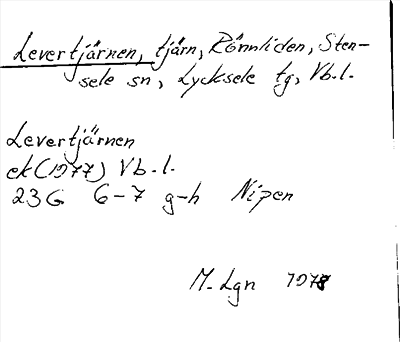 Levertjärnen, tjärn, Rönnliden, Sten-
sele sn, Lycksele tg, Vb.l.
Levertjärnen
ek (1977) Vb.l.
23G 6-7 g-h Nipen
M. Lgn 1978